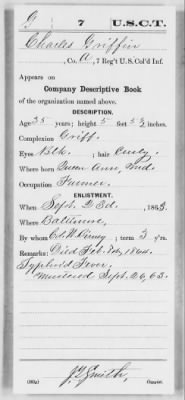 G 7 U.S.C.T.
Charles Griffin
, Co. A, 7 Reg't U.S. Col'd Inf.
Appears on
Company Descriptive Book
of the organization named above.
DESCRIPTION.
Age 35 years; height 5 feet 5 ½ inches.
Complexion Griff.
Eyes Blk. ; hair Curly.
Where born Queen Ann, Md.
Occupation Farmer.
ENLISTMENT.
When Sept. 23d, 1863.
Where Baltimore,
By whom Col. W. Birney; term 3 y'rs.
Remarks: Died Feb. 1864.
Typhoid Fever.
Mustered Sept. 26, 63.
J. Smith,
Copyist.